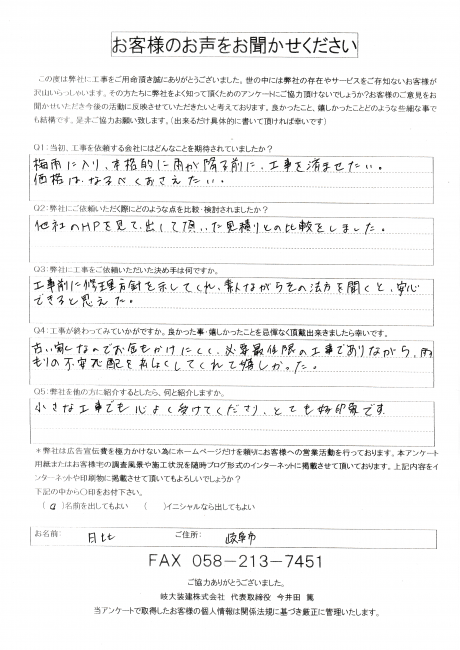 お客様のお声をお聞かせください
この度は弊社に工事をご用命頂き誠にありがとうございました。世の中には弊社の存在やサービスをご存知ないお客様が
沢山いらっしゃいます。その方たちに弊社をよく知って頂くためのアンケートにご協力頂けないでしょうか?お客様のご意見をお
聞かせいただき今後の活動に反映させていただきたいと考えております。良かったこと、嬉しかったことどのような些細な事で
も結構です。是非ご協力お願い致します。(出来るだけ具体的に書いて頂ければ幸いです)
Q1:当初、工事を依頼する会社にはどんなことを期待されていましたか?
梅雨に入り、本格的に雨が降る前に、工事を済ませたい。
価格は、なるべくおさえたい。
Q2:弊社にご依頼いただく際にどのような点を比較・検討されましたか?
他社のHPを見て、出して頂いた見積りとの比較をしました。
Q3:弊社に工事をご依頼いただいた決め手は何ですか。
工事前に修理方針を示してくれ、素人ながらその方法を聞くと、安心
できると思えた。
Q4:工事が終わってみていかがですか。良かった事・嬉しかったことを忌憚なく頂戴出来ましたら幸いです。
古い家なのでお金をかけにくく、必要最低限の工事でありながら、雨
もりの不安、心配をなくしてくれて嬉しかった。
Q5:弊社を他の方に紹介するとしたら、何と紹介しますか。
小さな工事でも心よく受けてくださり、とても好印象です
*弊社は広告宣伝費を極力かけない為にホームページだけを頼りにお客様への営業活動を行っております。本アンケート
用紙またはお客様宅の調査風景や施工状況を随時ブログ形式のインターネットに掲載させて頂いております。上記内容をイ
ンターネットや印刷物に掲載させて頂いてもよろしいでしょうか?
下記の中から○印をお付下さい。
(○)名前を出してもよい ( )イニシャルなら出してもよい
お名前: 日比 ご住所: 岐阜市
FAX 058-213-7451
ご協力ありがとうございました。
岐大装建株式会社 代表取締役 今井田 篤
当アンケートで取得したお客様の個人情報は関係法規に基づき厳正に管理いたします。